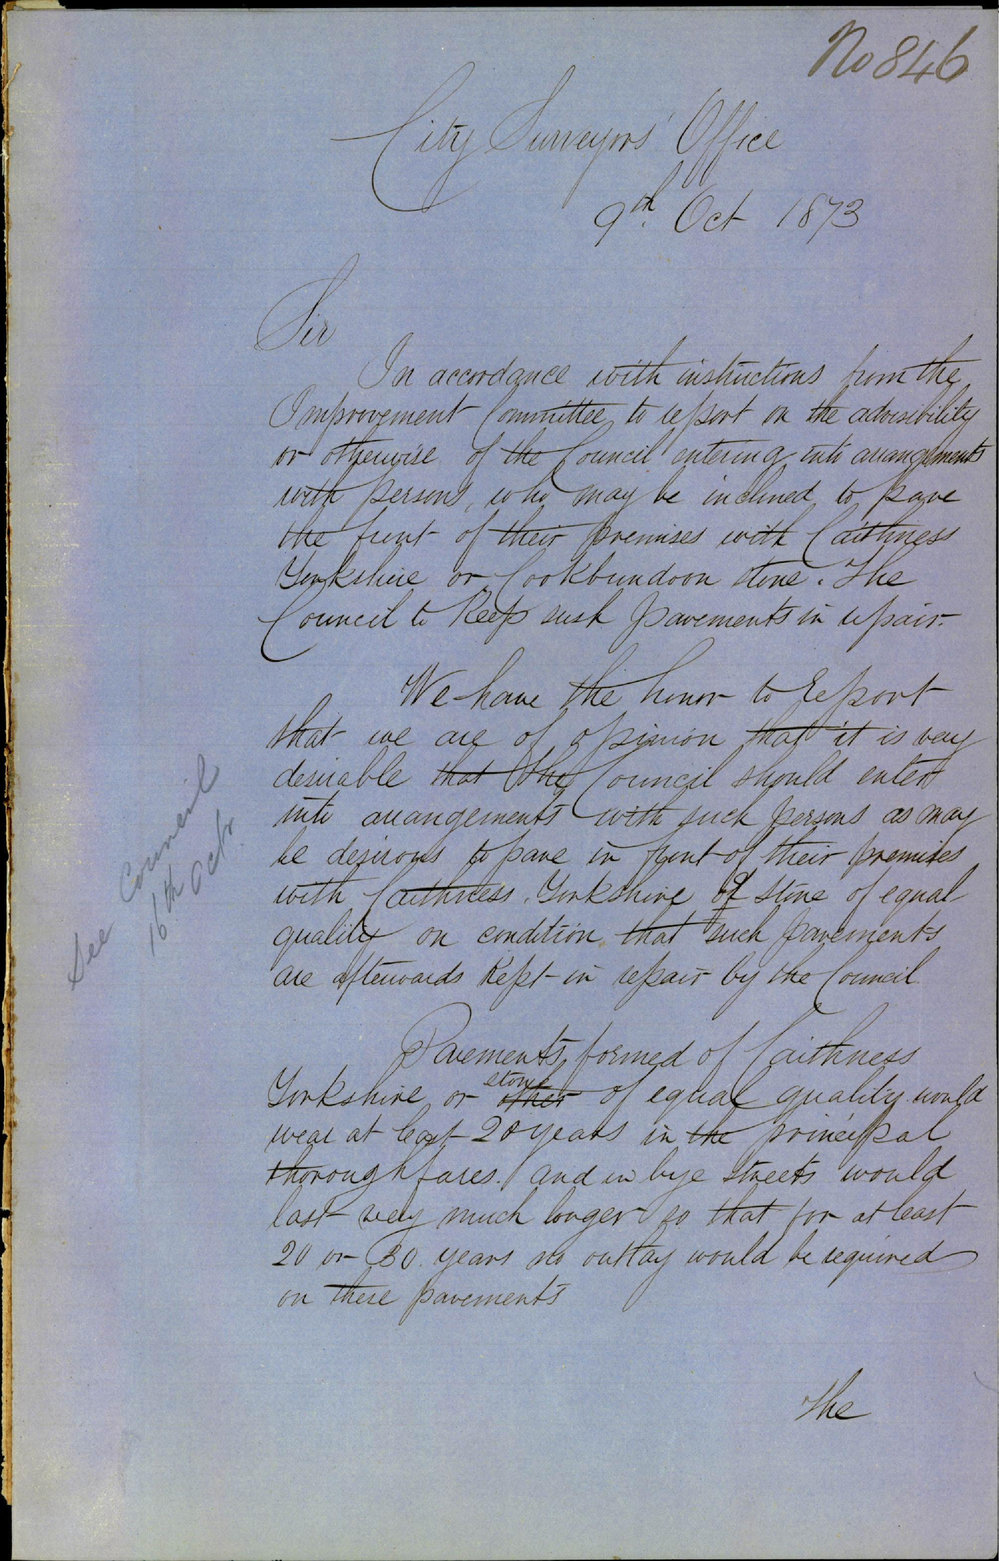 No 846
City Surveyors' Office
9th Oct 1873
Sir
In accordance with instructions from the
Improvement Committee to report on the advisibility
or otherwise of the Council entering into arrangements
with persons, who may be inclined to pave
the front of their premises with Caithness
Yorkshire or Cookbundoon stone. The
Council to keep such pavements in repair.
We have the honor to report
that we are of opinion that it is very
desirable that the Council should enter
into arrangements with such persons as may
be desirous to pave in front of their premises
with Caithness. Yorkshire of stone of equal
quality on condition that such pavements
are afterwards kept in repair by the Council.
Pavements formed of Caithness
stone
Yorkshire or other of equal quality would
wear at least 20 years in the principal
thoroughfares. and in bye streets would
last very much longer so that for at least
20 or 30. years no outlay would be required
on these pavements
The
See Council
16th Octr.